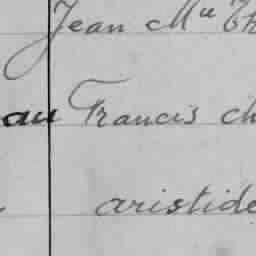 Jean Mie Th
au Francis ch
aristide